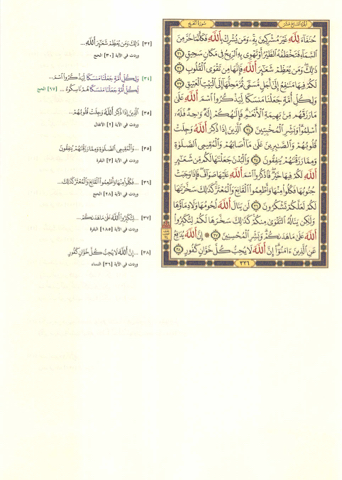 الجزء السابع عشر
سورة الحج
حُنَفَآءَ لِلَّهِ غَيْرَ مُشْرِكِينَ بِهِۦ وَمَن يُشْرِكْ بِٱللَّهِ فَكَأَنَّمَا خَرَّ مِنَ
ٱلسَّمَآءِ فَتَخْطَفُهُ ٱلطَّيْرُ أَوْ تَهْوِى بِهِ ٱلرِّيحُ فِى مَكَانٍ سَحِيقٍ ٣١
ذَٰلِكَ وَمَن يُعَظِّمْ شَعَٰٓئِرَ ٱللَّهِ فَإِنَّهَا مِن تَقْوَى ٱلْقُلُوبِ ٣٢
لَكُمْ فِيهَا مَنَٰفِعُ إِلَىٰٓ أَجَلٍ مُّسَمًّى ثُمَّ مَحِلُّهَآ إِلَى ٱلْبَيْتِ ٱلْعَتِيقِ ٣٣
وَلِكُلِّ أُمَّةٍ جَعَلْنَا مَنسَكًا لِّيَذْكُرُوا۟ ٱسْمَ ٱللَّهِ عَلَىٰ
مَا رَزَقَهُم مِّنۢ بَهِيمَةِ ٱلْأَنْعَٰمِ فَإِلَٰهُكُمْ إِلَٰهٌ وَٰحِدٌ فَلَهُۥٓ
أَسْلِمُوا۟ وَبَشِّرِ ٱلْمُخْبِتِينَ ٣٤ ٱلَّذِينَ إِذَا ذُكِرَ ٱللَّهُ وَجِلَتْ
قُلُوبُهُمْ وَٱلصَّٰبِرِينَ عَلَىٰ مَآ أَصَابَهُمْ وَٱلْمُقِيمِى ٱلصَّلَوٰةِ
وَمِمَّا رَزَقْنَٰهُمْ يُنفِقُونَ ٣٥ وَٱلْبُدْنَ جَعَلْنَٰهَا لَكُم مِّن شَعَٰٓئِرِ
ٱللَّهِ لَكُمْ فِيهَا خَيْرٌ فَٱذْكُرُوا۟ ٱسْمَ ٱللَّهِ عَلَيْهَا صَوَآفَّ فَإِذَا وَجَبَتْ
جُنُوبُهَا فَكُلُوا۟ مِنْهَا وَأَطْعِمُوا۟ ٱلْقَانِعَ وَٱلْمُعْتَرَّ كَذَٰلِكَ سَخَّرْنَٰهَا
لَكُمْ لَعَلَّكُمْ تَشْكُرُونَ ٣٦ لَن يَنَالَ ٱللَّهَ لُحُومُهَا وَلَا دِمَآؤُهَا
وَلَٰكِن يَنَالُهُ ٱلتَّقْوَىٰ مِنكُمْ كَذَٰلِكَ سَخَّرَهَا لَكُمْ لِتُكَبِّرُوا۟
ٱللَّهَ عَلَىٰ مَا هَدَىٰكُمْ وَبَشِّرِ ٱلْمُحْسِنِينَ ٣٧ إِنَّ ٱللَّهَ يُدَٰفِعُ
عَنِ ٱلَّذِينَ ءَامَنُوٓا۟ إِنَّ ٱللَّهَ لَا يُحِبُّ كُلَّ خَوَّانٍ كَفُورٍ ٣٨
٣٣٦
[٣٢] ذَٰلِكَ وَمَن يُعَظِّمْ شَعَٰٓئِرَ ٱللَّهِ...
وردت في الآية [٣٠] الحج
[٣٤] وَلِكُلِّ أُمَّةٍ جَعَلْنَا مَنسَكًا لِّيَذْكُرُوا۟ ٱسْمَ...
لِّكُلِّ أُمَّةٍ جَعَلْنَا مَنسَكًا هُمْ نَاسِكُوهُ... [٦٧] الحج
[٣٥] ٱلَّذِينَ إِذَا ذُكِرَ ٱللَّهُ وَجِلَتْ قُلُوبُهُمْ...
وردت في الآية [٢] الأنفال
[٣٥] ...وَٱلْمُقِيمِى ٱلصَّلَوٰةِ وَمِمَّا رَزَقْنَٰهُمْ يُنفِقُونَ
وردت في الآية [٣] البقرة
[٣٦] ...فَكُلُوا۟ مِنْهَا وَأَطْعِمُوا۟ ٱلْقَانِعَ وَٱلْمُعْتَرَّ كَذَٰلِكَ...
وردت في الآية [٢٨] الحج
[٣٧] ...لِتُكَبِّرُوا۟ ٱللَّهَ عَلَىٰ مَا هَدَىٰكُمْ...
وردت في الآية [١٨٥] البقرة
[٣٨] ...إِنَّ ٱللَّهَ لَا يُحِبُّ كُلَّ خَوَّانٍ كَفُورٍ
وردت في الآية [٣٦] النساء